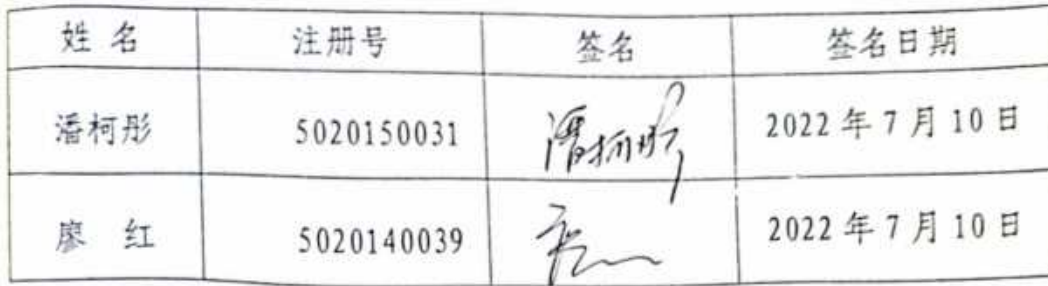 姓 名 注册号 签名 签名日期
潘柯彤 5020150031 潘柯彤 2022 年 7 月 10 日
廖 红 5020140039 2022 年 7 月 10 日